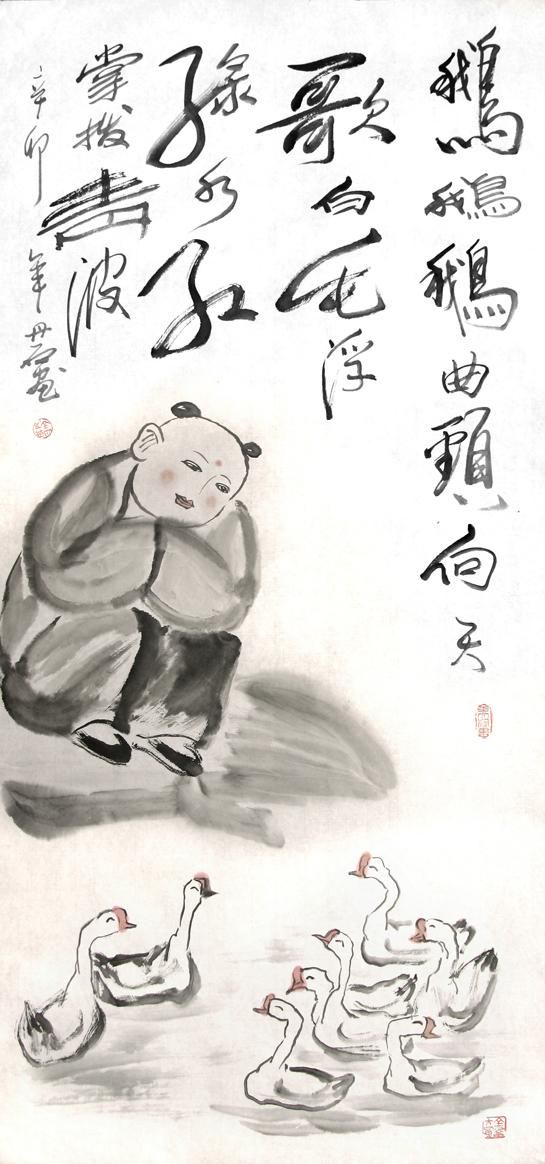 鵝鵝鵝曲頸向天
歌白毛浮
綠水紅
掌撥清波
辛卯年